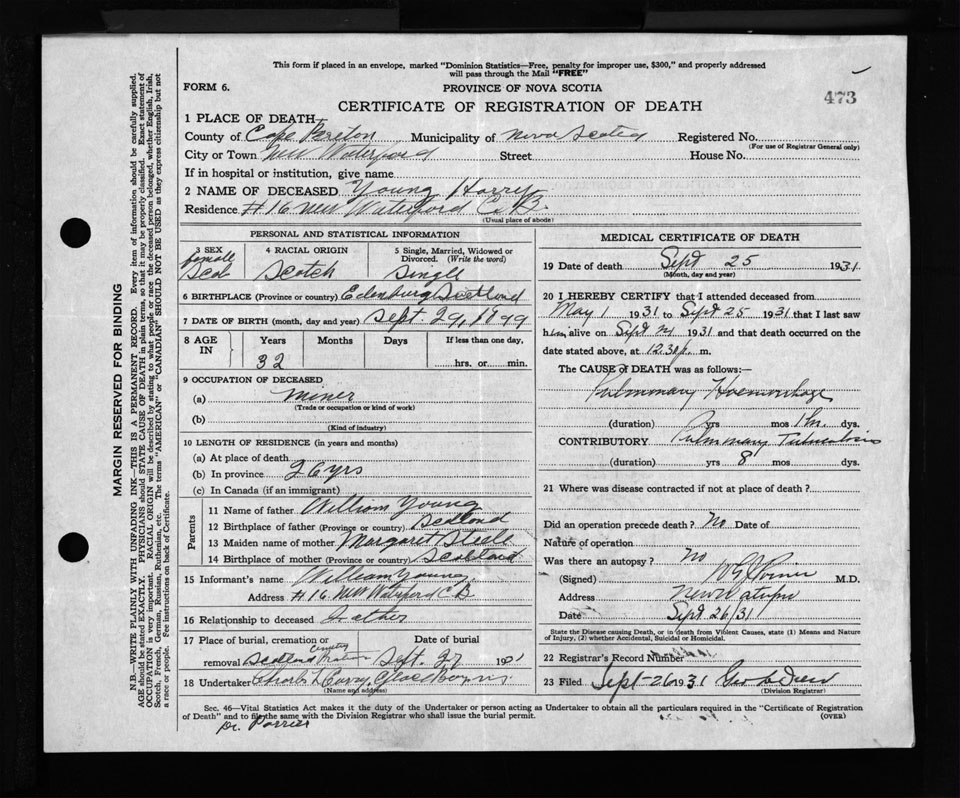 This form if placed in an envelope, marked "Dominion Statistics—Free, penalty for improper use, $300," and properly addressed
will pass through the Mail "FREE"
FORM 6.
PROVINCE OF NOVA SCOTIA
473
CERTIFICATE OF REGISTRATION OF DEATH
1 PLACE OF DEATH
County of Cape Breton Municipality of Nova Scotia Registered No.
(For use of Registrar General only)
City or Town New Waterford Street House No.
If in hospital or institution, give name
2 NAME OF DECEASED Young Harry
Residence #16 New Waterford C. B.
(Usual place of abode)
PERSONAL AND STATISTICAL INFORMATION
3 SEX 4 RACIAL ORIGIN 5 Single, Married, Widowed or
Divorced. (Write the word)
female
Scotch Single
6 BIRTHPLACE (Province or country) Edenburg Scotland
7 DATE OF BIRTH (month, day and year) Sept. 29, 1899
8 AGE IN Years Months Days If less than one day,
32 hrs. or min.
9 OCCUPATION OF DECEASED
(a) Miner
(Trade or occupation or kind of work)
(b)
(Kind of industry)
10 LENGTH OF RESIDENCE (in years and months)
(a) At place of death
(b) In province 26 yrs
(c) In Canada (if an immigrant)
Parents
11 Name of father William Young
12 Birthplace of father (Province or country)
13 Maiden name of mother Margaret Steele
14 Birthplace of mother (Province or country) Scotland
15 Informant's name William Young
Address #16 New Waterford C B
16 Relationship to deceased
17 Place of burial, cremation or Date of burial
removal Cemetery Sept. 27 193
18 Undertaker Glace Bay
(Name and address)
MEDICAL CERTIFICATE OF DEATH
19 Date of death Sept 25 1931
(Month, day and year)
20 I HEREBY CERTIFY that I attended deceased from
May 1 1931 to Sept 25 1931 that I last saw
him alive on Sept 1931 and that death occurred on
date stated above, at 12.30 p. m.
The CAUSE of DEATH was as follows:—
Pulmonary Haemorrhage
(duration) yrs mos dys.
CONTRIBUTORY Pulmonary Tuberculosis
(duration) yrs 8 mos dys.
21 Where was disease contracted if not at place of death?
Did an operation precede death? No Date of
Nature of operation
Was there an autopsy? No
(Signed) M.D.
Address New Waterford
Date Sept 26/31
State the Disease causing Death, or in death from Violent Causes, state (1) Means and Nature
of Injury, (2) whether Accidental, Suicidal or Homicidal.
22 Registrar's Record Number
23 Filed Sept-26 1931
(Division Registrar)
Sec. 46—Vital Statistics Act makes it the duty of the Undertaker or person acting as Undertaker to obtain all the particulars required in the "Certificate of Registration
of Death" and to file the same with the Division Registrar who shall issue the burial permit.
(OVER)
MARGIN RESERVED FOR BINDING
N.B.—WRITE PLAINLY WITH UNFADING INK—THIS IS A PERMANENT RECORD. Every item of information should be carefully supplied.
AGE should be stated EXACTLY. PHYSICIANS should STATE CAUSE OF DEATH in plain terms, so that it may be properly classified. Exact statement of
OCCUPATION is very important. RACIAL ORIGIN will be described by stating to what people or race the deceased person belonged, whether English, Irish,
Scotch, French, German, Russian, Ruthenian, etc. The terms "AMERICAN" or "CANADIAN" SHOULD NOT BE USED as they express citizenship but not
a race or people. See instructions on back of Certificate.